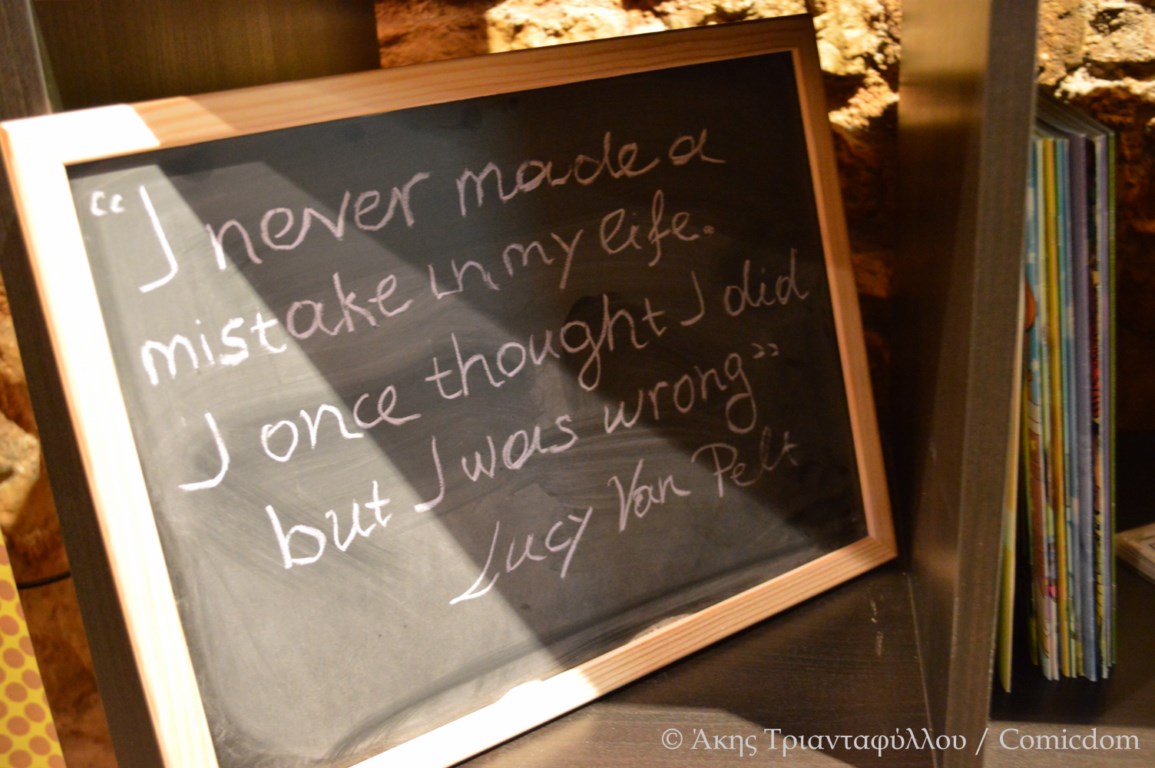 “I never made a
mistake in my life.
I once thought I did
but I was wrong”
Lucy Van Pelt
© Άκης Τριανταφύλλου / Comicdom